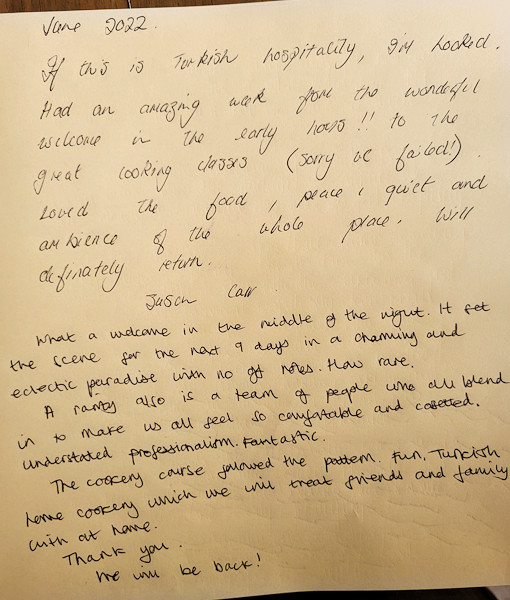 June 2022.
If this is Turkish hospitality, I'm hooked.
Had an amazing week from the wonderful
welcome in the early hours!! to the
great cooking classes (sorry we failed!).
Loved the food, peace, quiet and
ambience of the whole place. Will
definately return.
Carr
What a welcome in the middle of the night. It set
the scene for the next 9 days in a charming and
eclectic paradise with no off notes. How rare.
A rarity also is a team of people who all blend
in to make us all feel so comfortable and cosetted.
Understated professionalism. Fantastic.
The cookery course followed the pattern. Fun, Turkish
home cookery which we will treat friends and family
with at home.
Thank you.
We will be back!